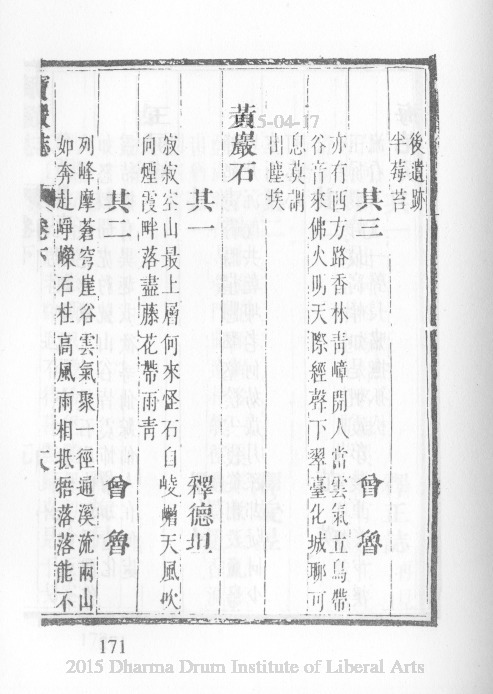 後遺跡
半莓苔
其三 曾魯
亦有西方路香林青嶂開人當雲氣立鳥帶
谷音來佛火明天際經聲下翠臺化城聊可
息莫謂
出塵埃
黃巖石
其一 釋德坦
寂寂空山最上層何來怪石自崚嶒天風吹
向煙霞畔落盡藤花帶雨青
其二 曾魯
列峰摩蒼穹崖谷雲氣聚一徑遍溪流兩山
如奔赴崢嶸石柱高風雨相抵牾落落能不
巖誌 卷下 六
5-04-17
171
2015 Dharma Drum Institute of Liberal Arts